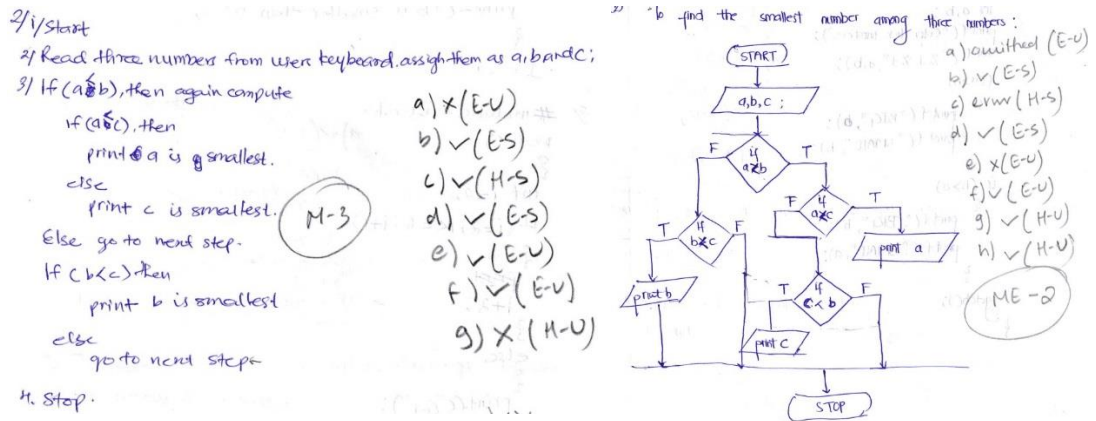 2/ 1/ Start
2/ Read three numbers from users keyboard. assign them as a, b and c;
3/ If (a<b), then again compute
if (a<c), then
print a is smallest.
else
print c is smallest.
Else go to next step.
If (b<c) then
print b is smallest
else
go to next step
4. Stop.
M-3
a) x (E-U)
b) ✓ (E-S)
c) ✓ (H-S)
d) ✓ (E-S)
e) ✓ (E-U)
f) ✓ (E-U)
g) x (H-U)
To find the smallest number among three numbers:
START
a,b,c ;
F
if a<b
T
F
if a<c
T
T
if b<c
F
print a
print b
T
if c<b
F
print c
STOP
a) omitted (E-U)
b) ✓ (E-S)
c) error (H-S)
d) ✓ (E-S)
e) x (E-U)
f) ✓ (E-U)
g) ✓ (H-U)
h) ✓ (H-U)
ME-2